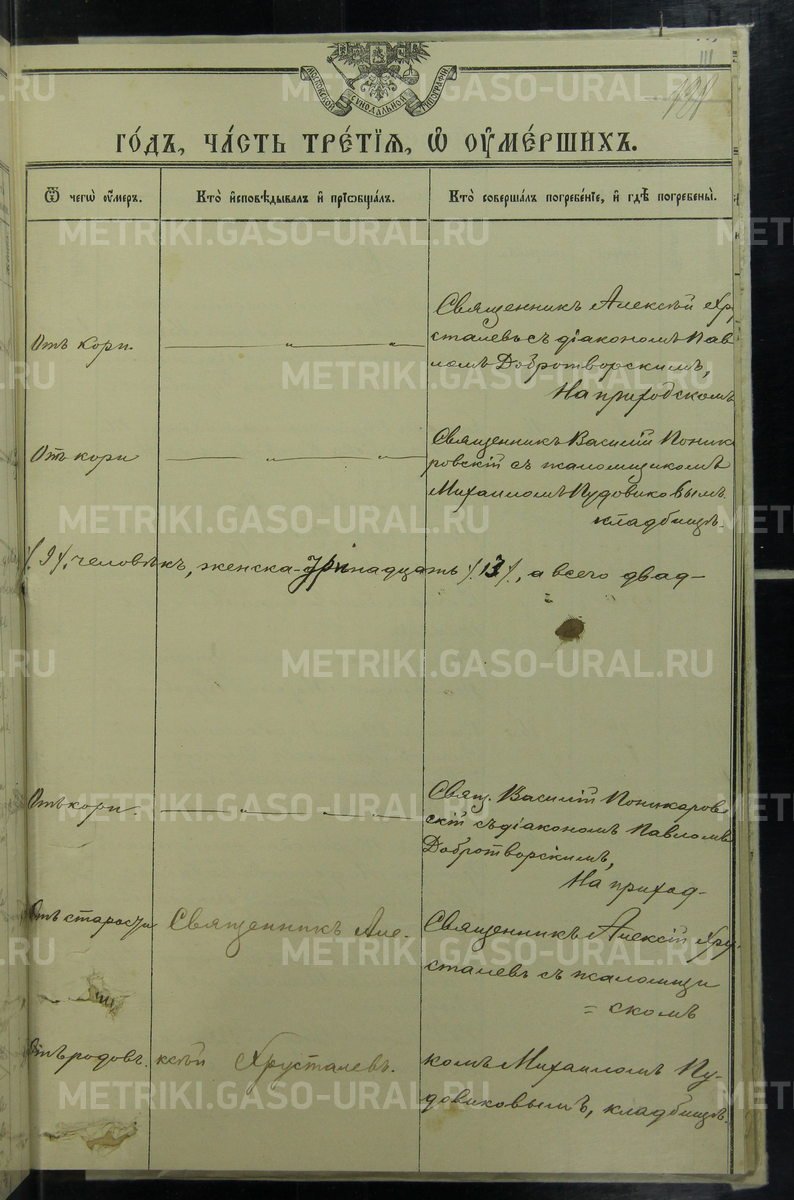 МОСКОВСКОЙ СѴНОДАЛЬНОЙ ТИПОГРАФІИ
ГО́ДЪ, ЧА́СТЬ ТРЕ́ТІѦ, Ѡ҆ ОУ҆МЕ́РШИХЪ.
Ѿ чегѡ̀ оу҆́меръ.
Кто̀ и҆сповѣ́дывалъ и҆ прїѡбща́лъ.
Кто̀ соверша́лъ погребе́нїе, и҆ гдѣ̀ погребены̀.
Отъ кори.
— „ — „ —
Священникъ Алексѣй Хру
сталевъ съ діакономъ Пав
ломъ Добротворскимъ,
На приходскомъ
Отъ кори
— „ — „ —
Священникъ Василій Поника
ровскій съ псаломщикомъ
Михаиломъ Пудовиковымъ.
кладбищѣ.
/.9/. человѣкъ, женска-тринадцать /.13/., а всего двад-
Отъ кори.
— „ — „ —
Свящ. Василій Поникаров
скій съ діакономъ Павломъ
Добротворскимъ,
На приход-
Отъ старости
Священникъ Але-
Священникъ Алексій Хру-
сталевъ съ псаломщи
= скомъ
Отъ родовъ.
ксѣй Хрусталевъ.
комъ Михаиломъ Пу-
довиковымъ, кладбищѣ.
METRIKI.GASO-URAL.RU